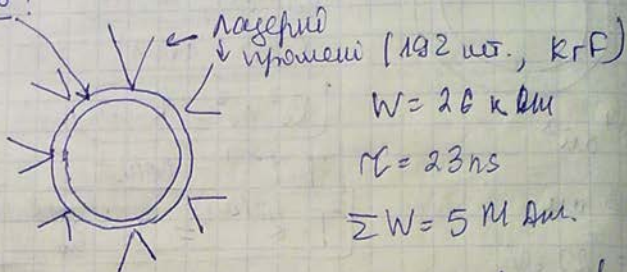 лазерні
промені (192 шт., KrF)
W = 26 кДж
τ = 23 ns
ΣW = 5 МДж.